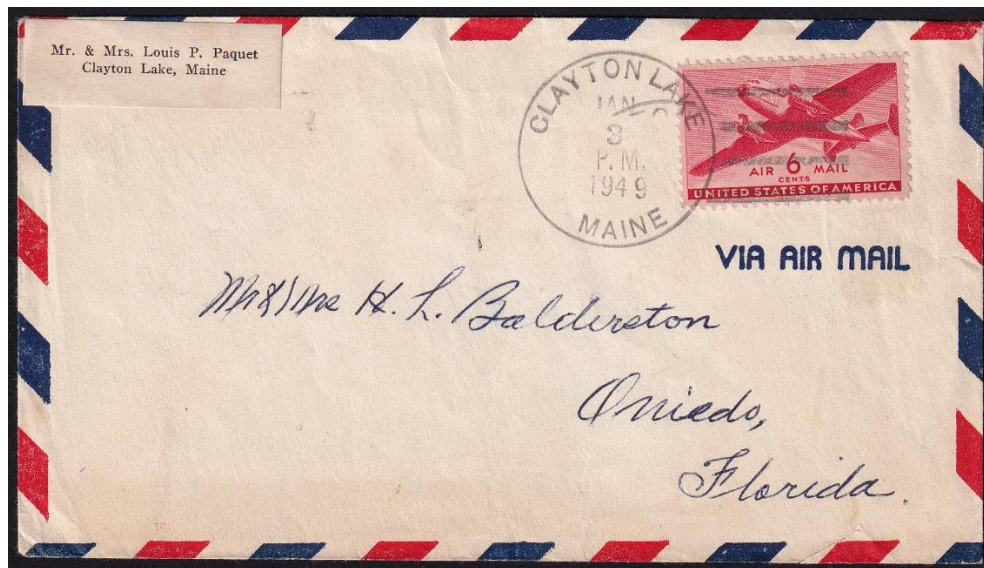 Mr. & Mrs. Louis P. Paquet
Clayton Lake, Maine
CLAYTON LAKE
JAN
3
P. M.
1949
MAINE
AIR 6 MAIL
CENTS
UNITED STATES OF AMERICA
VIA AIR MAIL
Mr & Mrs H. L. Balderston
Oviedo,
Florida.